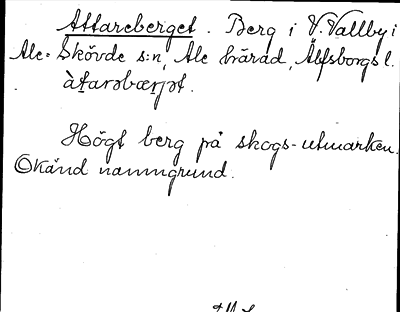 Attareberget. Berg i V. Vallby i
Ale-Skövde s:n, Ale härad, Älfsborgs l.
àtarəbærjət.
Högt berg på skogs-utmarken.
Okänd namngrund.